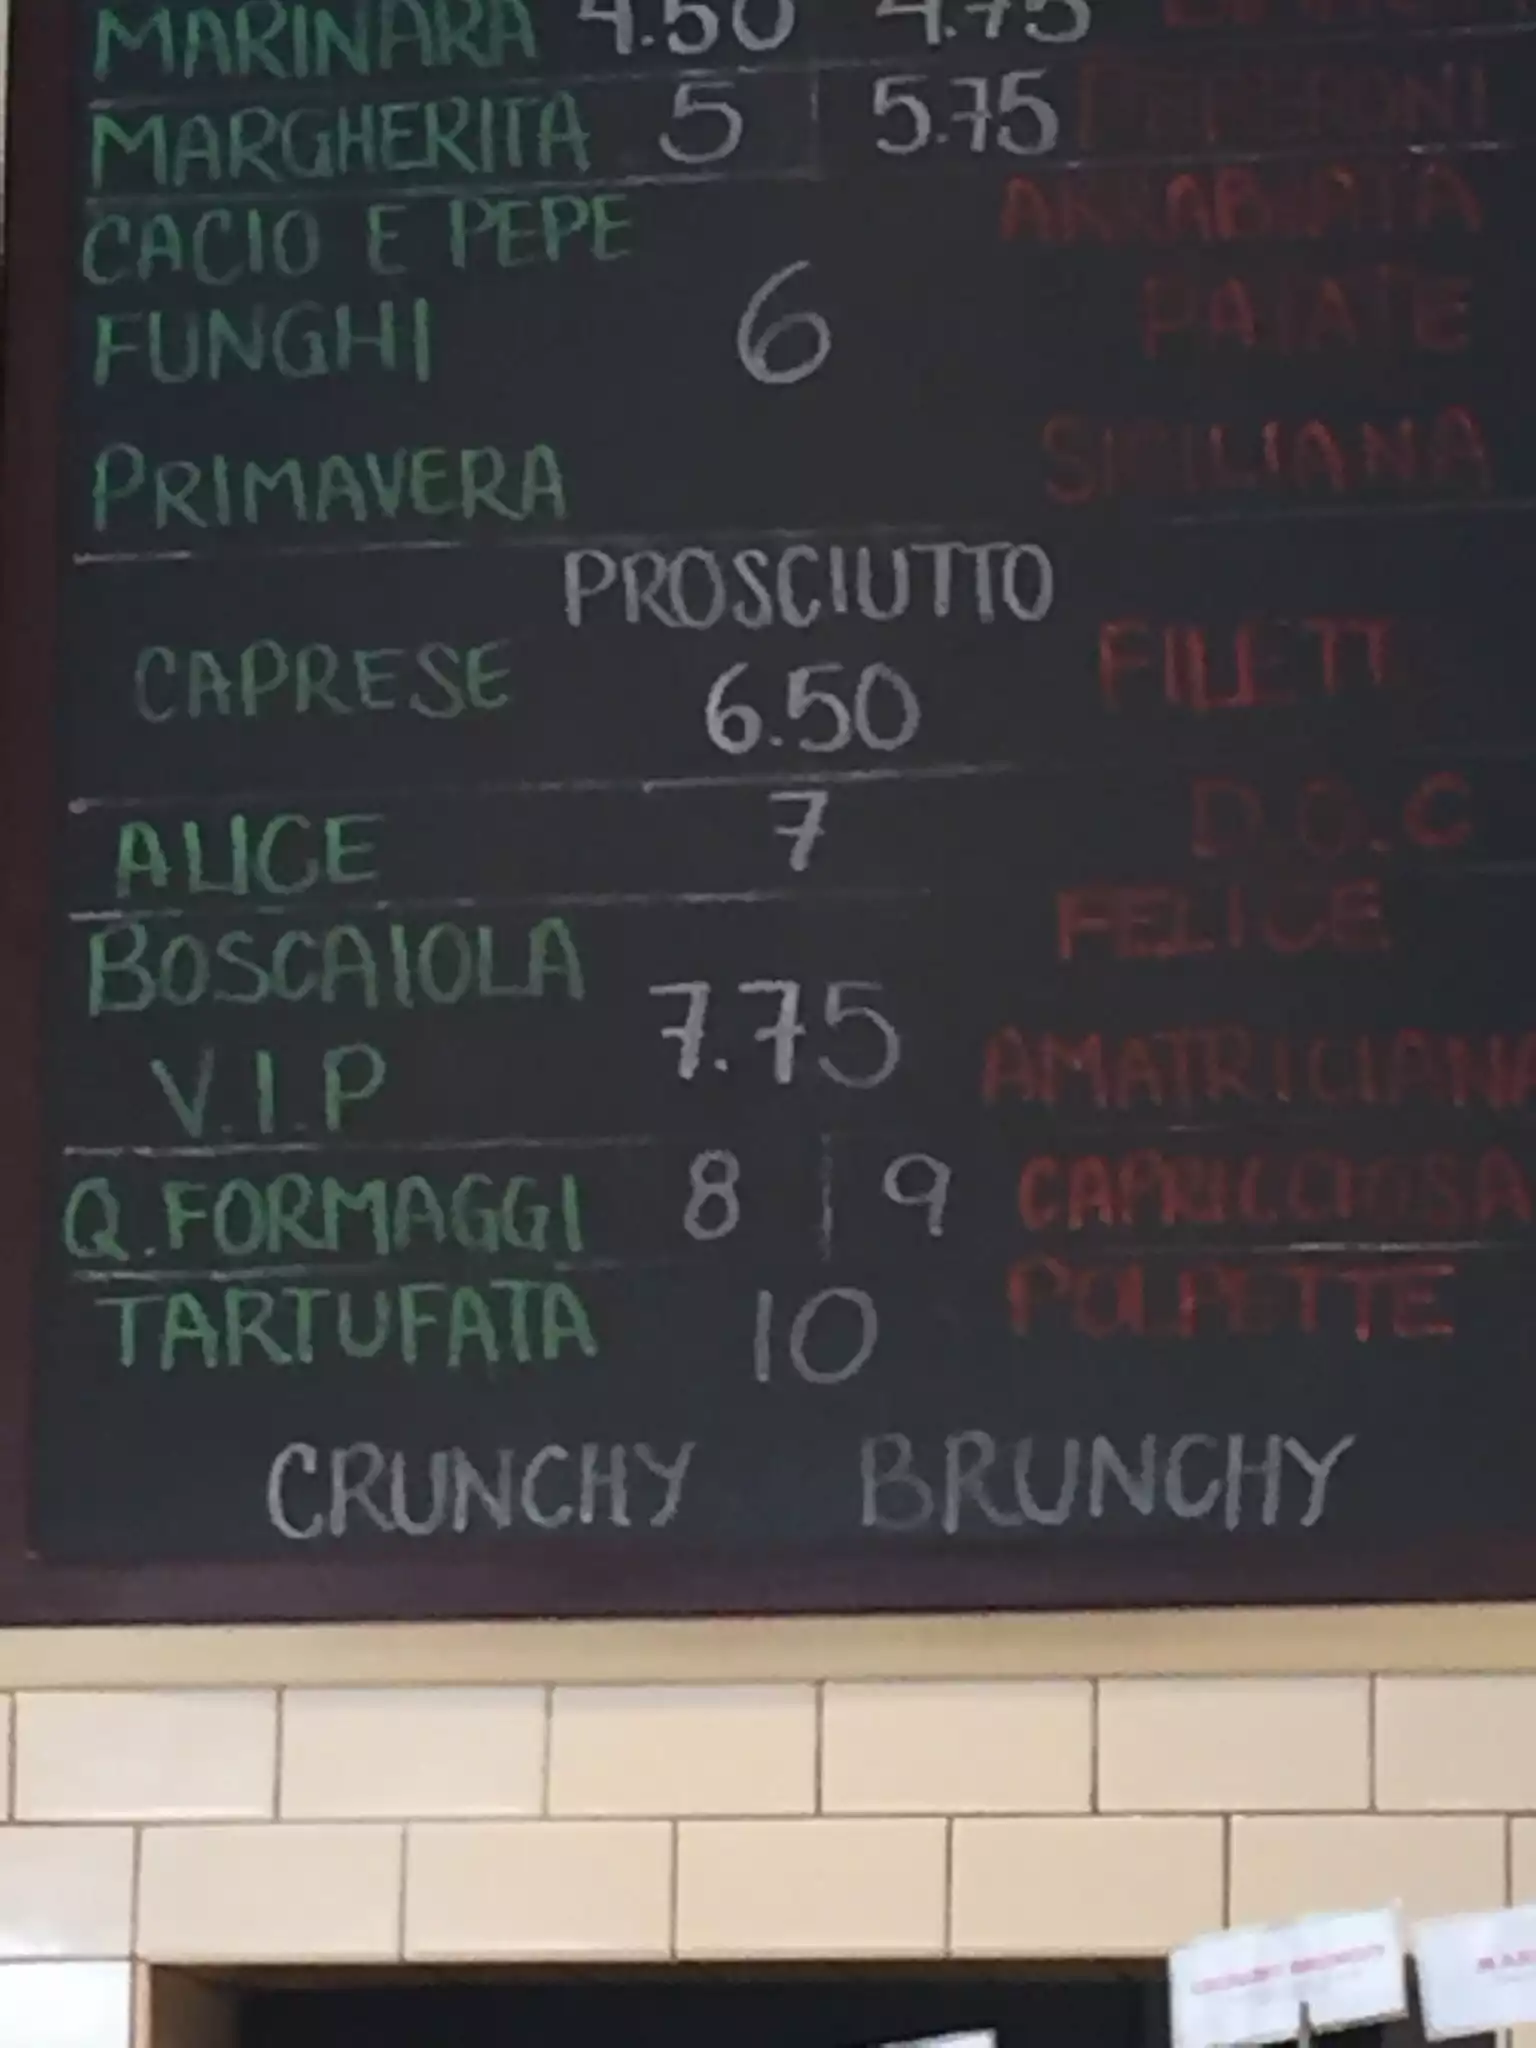 MARINARA 4.50 4.75
MARGHERITA 5 5.75 PEPERONI
CACIO E PEPE ARRABBIATA
FUNGHI 6 PATATE
PRIMAVERA SICILIANA
PROSCIUTTO
CAPRESE 6.50 FILETTI
ALICE 7 D.O.C
BOSCAIOLA FELICE
7.75
V.I.P AMATRICIANA
Q.FORMAGGI 8 9 CAPRICCIOSA
TARTUFATA 10 POLPETTE
CRUNCHY BRUNCHY